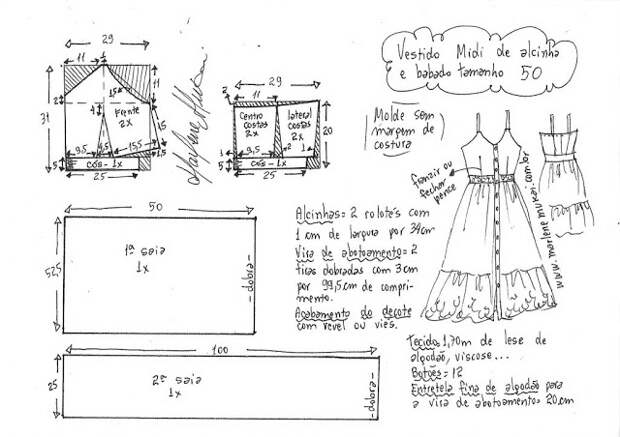 Vestido Midi de alcinha
e babado tamanho 50
29
11
1
31
2
15
4
Frente
2x
11
15
9,5
15,5
1,5
5
cós - 1x
25
29
11
2
centro
costas
2x
lateral
costas
2x
20
1
9,5
2
1
5
cós - 1x
25
Molde sem
margem de
costura
franzir ou
fechar
pence
www.marlenemukai.com.br
50
52,5
1ª saia
1x
-dobra-
Alcinhas = 2 rolotês com
1 cm de largura por 34cm
Vira de abotoamento = 2
tiras dobradas com 3cm
por 99,5cm de compri-
mento.
Acabamento do decote
com revel ou viés.
100
25
2ª saia
1x
-dobra-
Tecido: 1,70m de lese de
algodão, viscose...
Botões = 12
Entretela fina de algodão para
a vira de abotoamento = 20cm